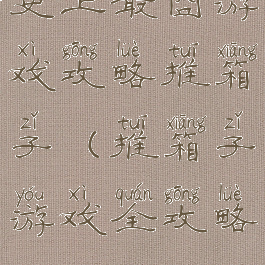 史上最囧游
xì gōng lüè tuī xiāng
戏攻略推箱
zǐ tuī xiāng zǐ
子（推箱子
yóu xì quán gōng lüè
游戏全攻略